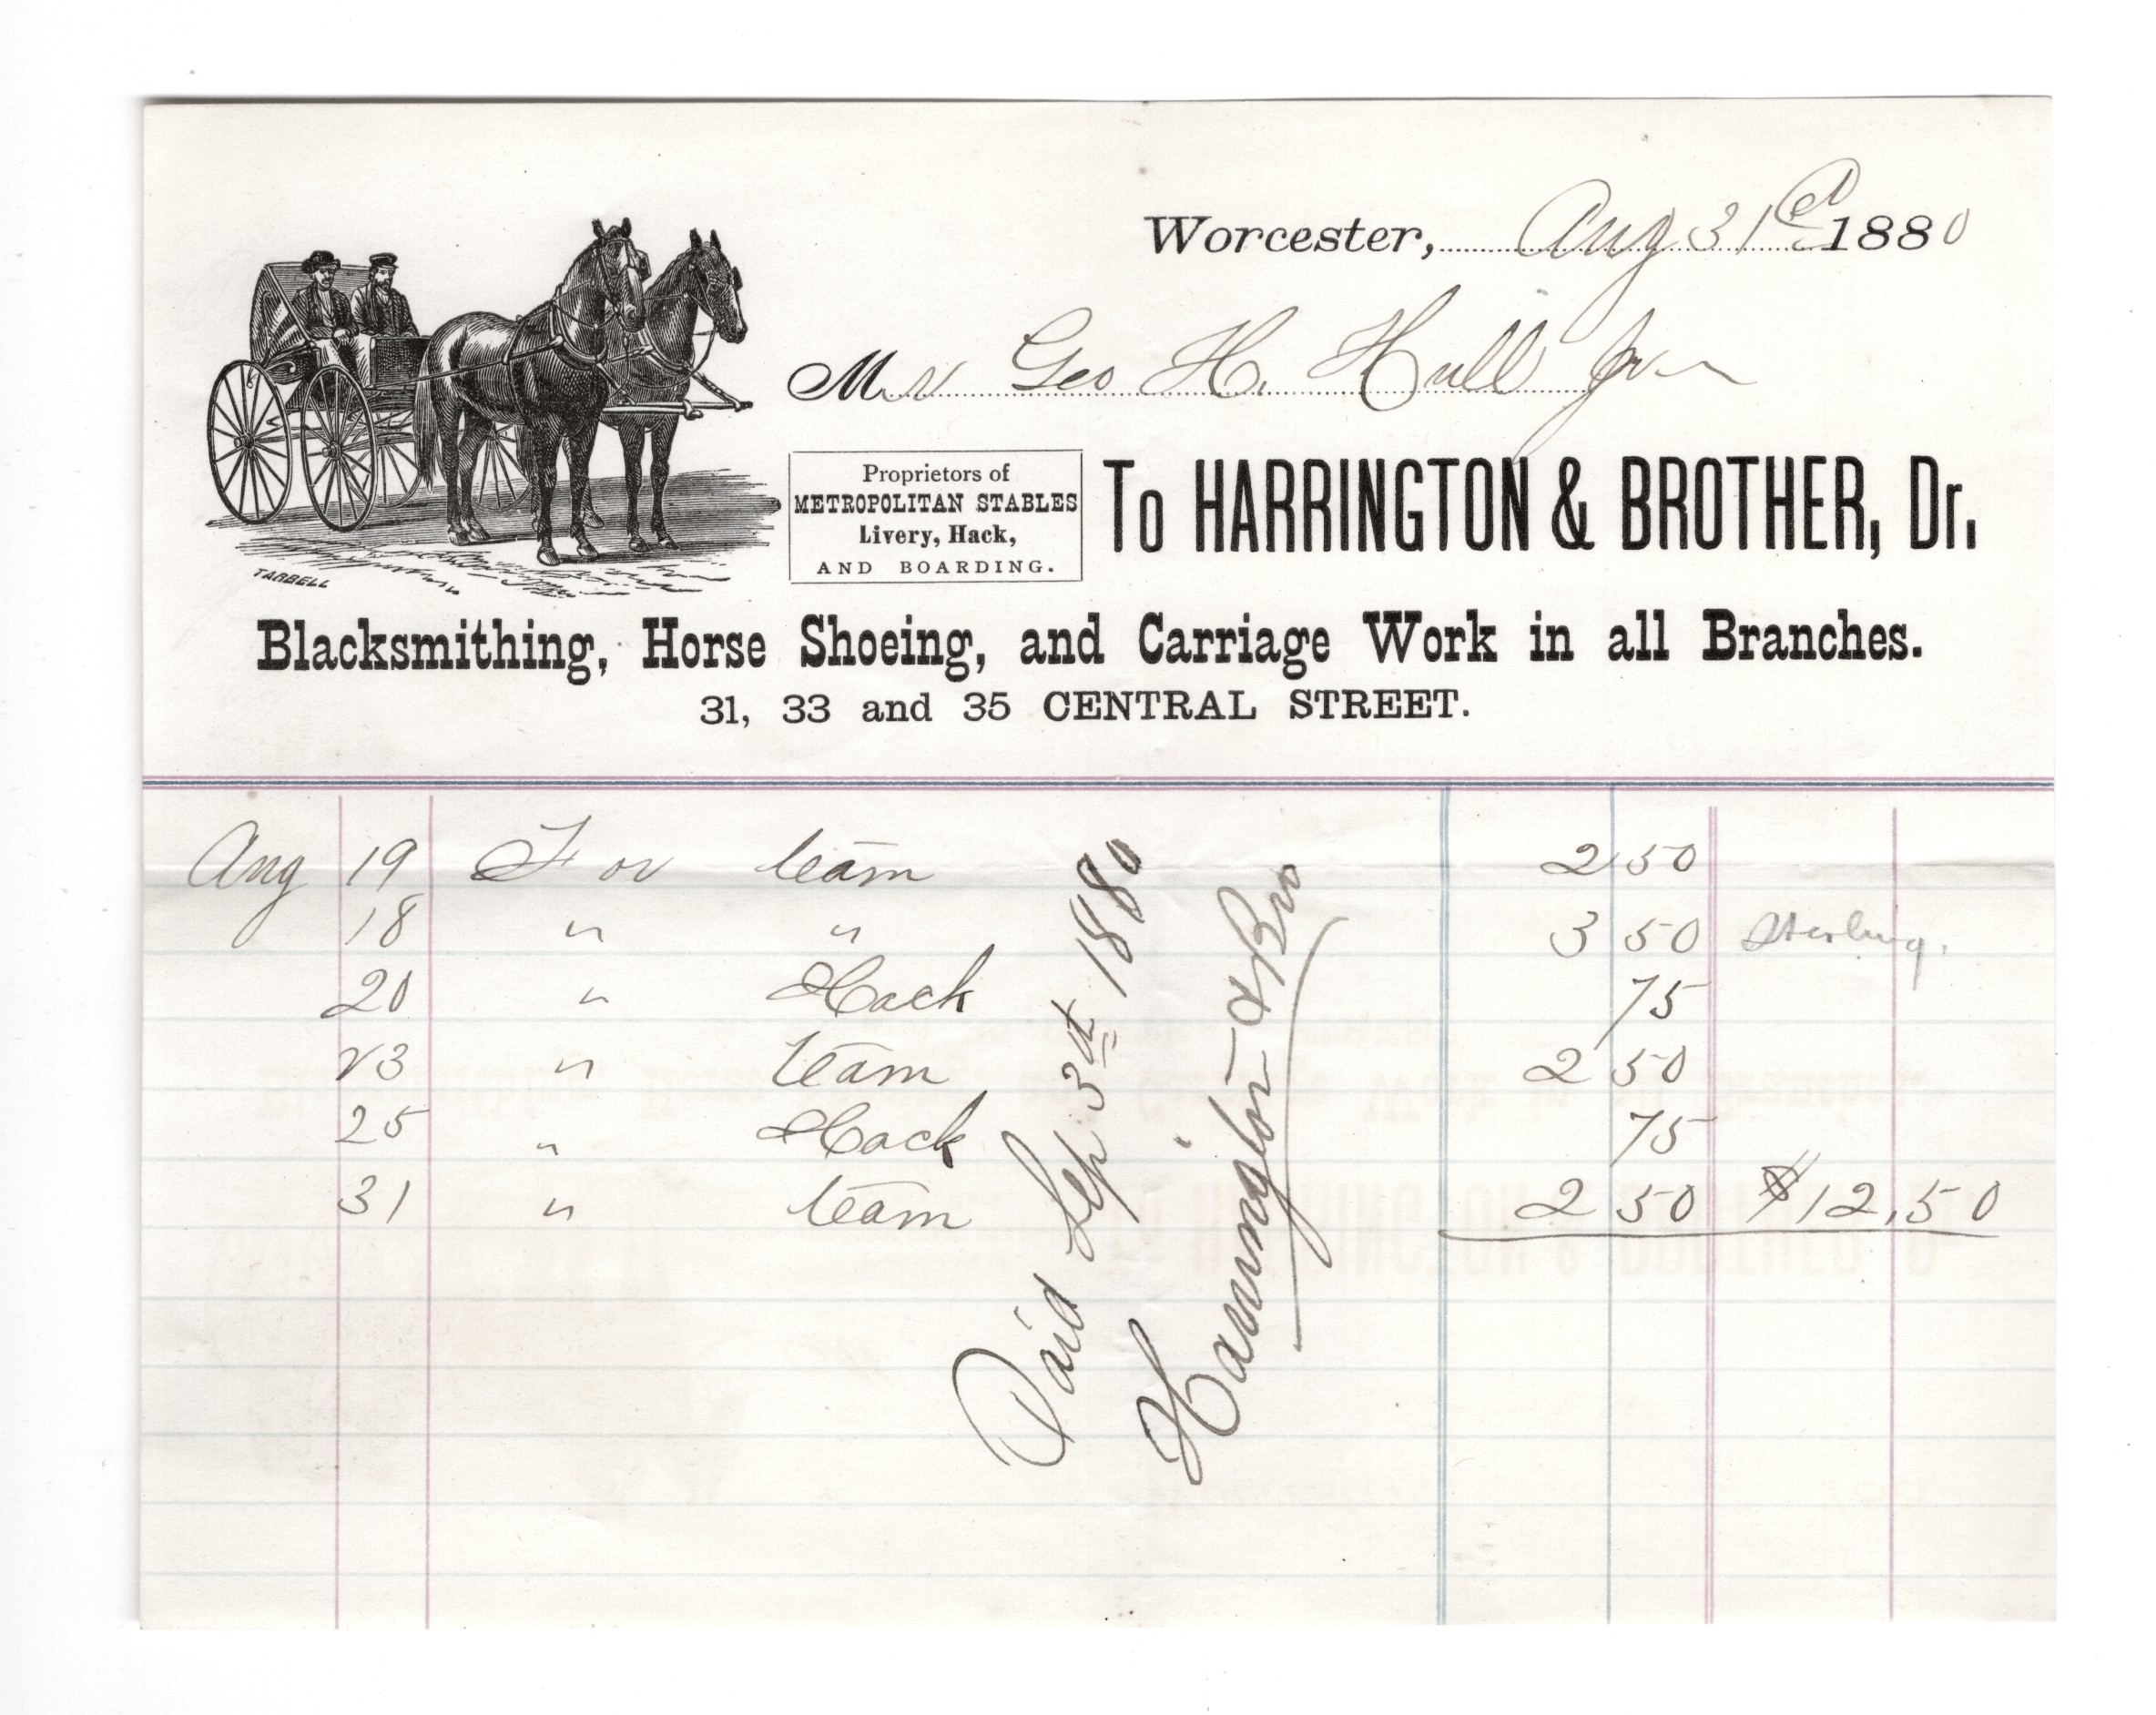 Worcester, Aug 31st 1880
Mr Geo H. Hull Jr
Proprietors of
METROPOLITAN STABLES
Livery, Hack,
AND BOARDING.
To HARRINGTON & BROTHER, Dr.
TARBELL
Blacksmithing, Horse Shoeing, and Carriage Work in all Branches.
31, 33 and 35 CENTRAL STREET.
Aug 19 For team 2 50
18 " " 3 50 Sterling.
20 " Hack 75
23 " team 2 50
25 " Hack 75
31 " team 2 50 $12,50
Paid Sep 3th 1880
Harrington & Bro